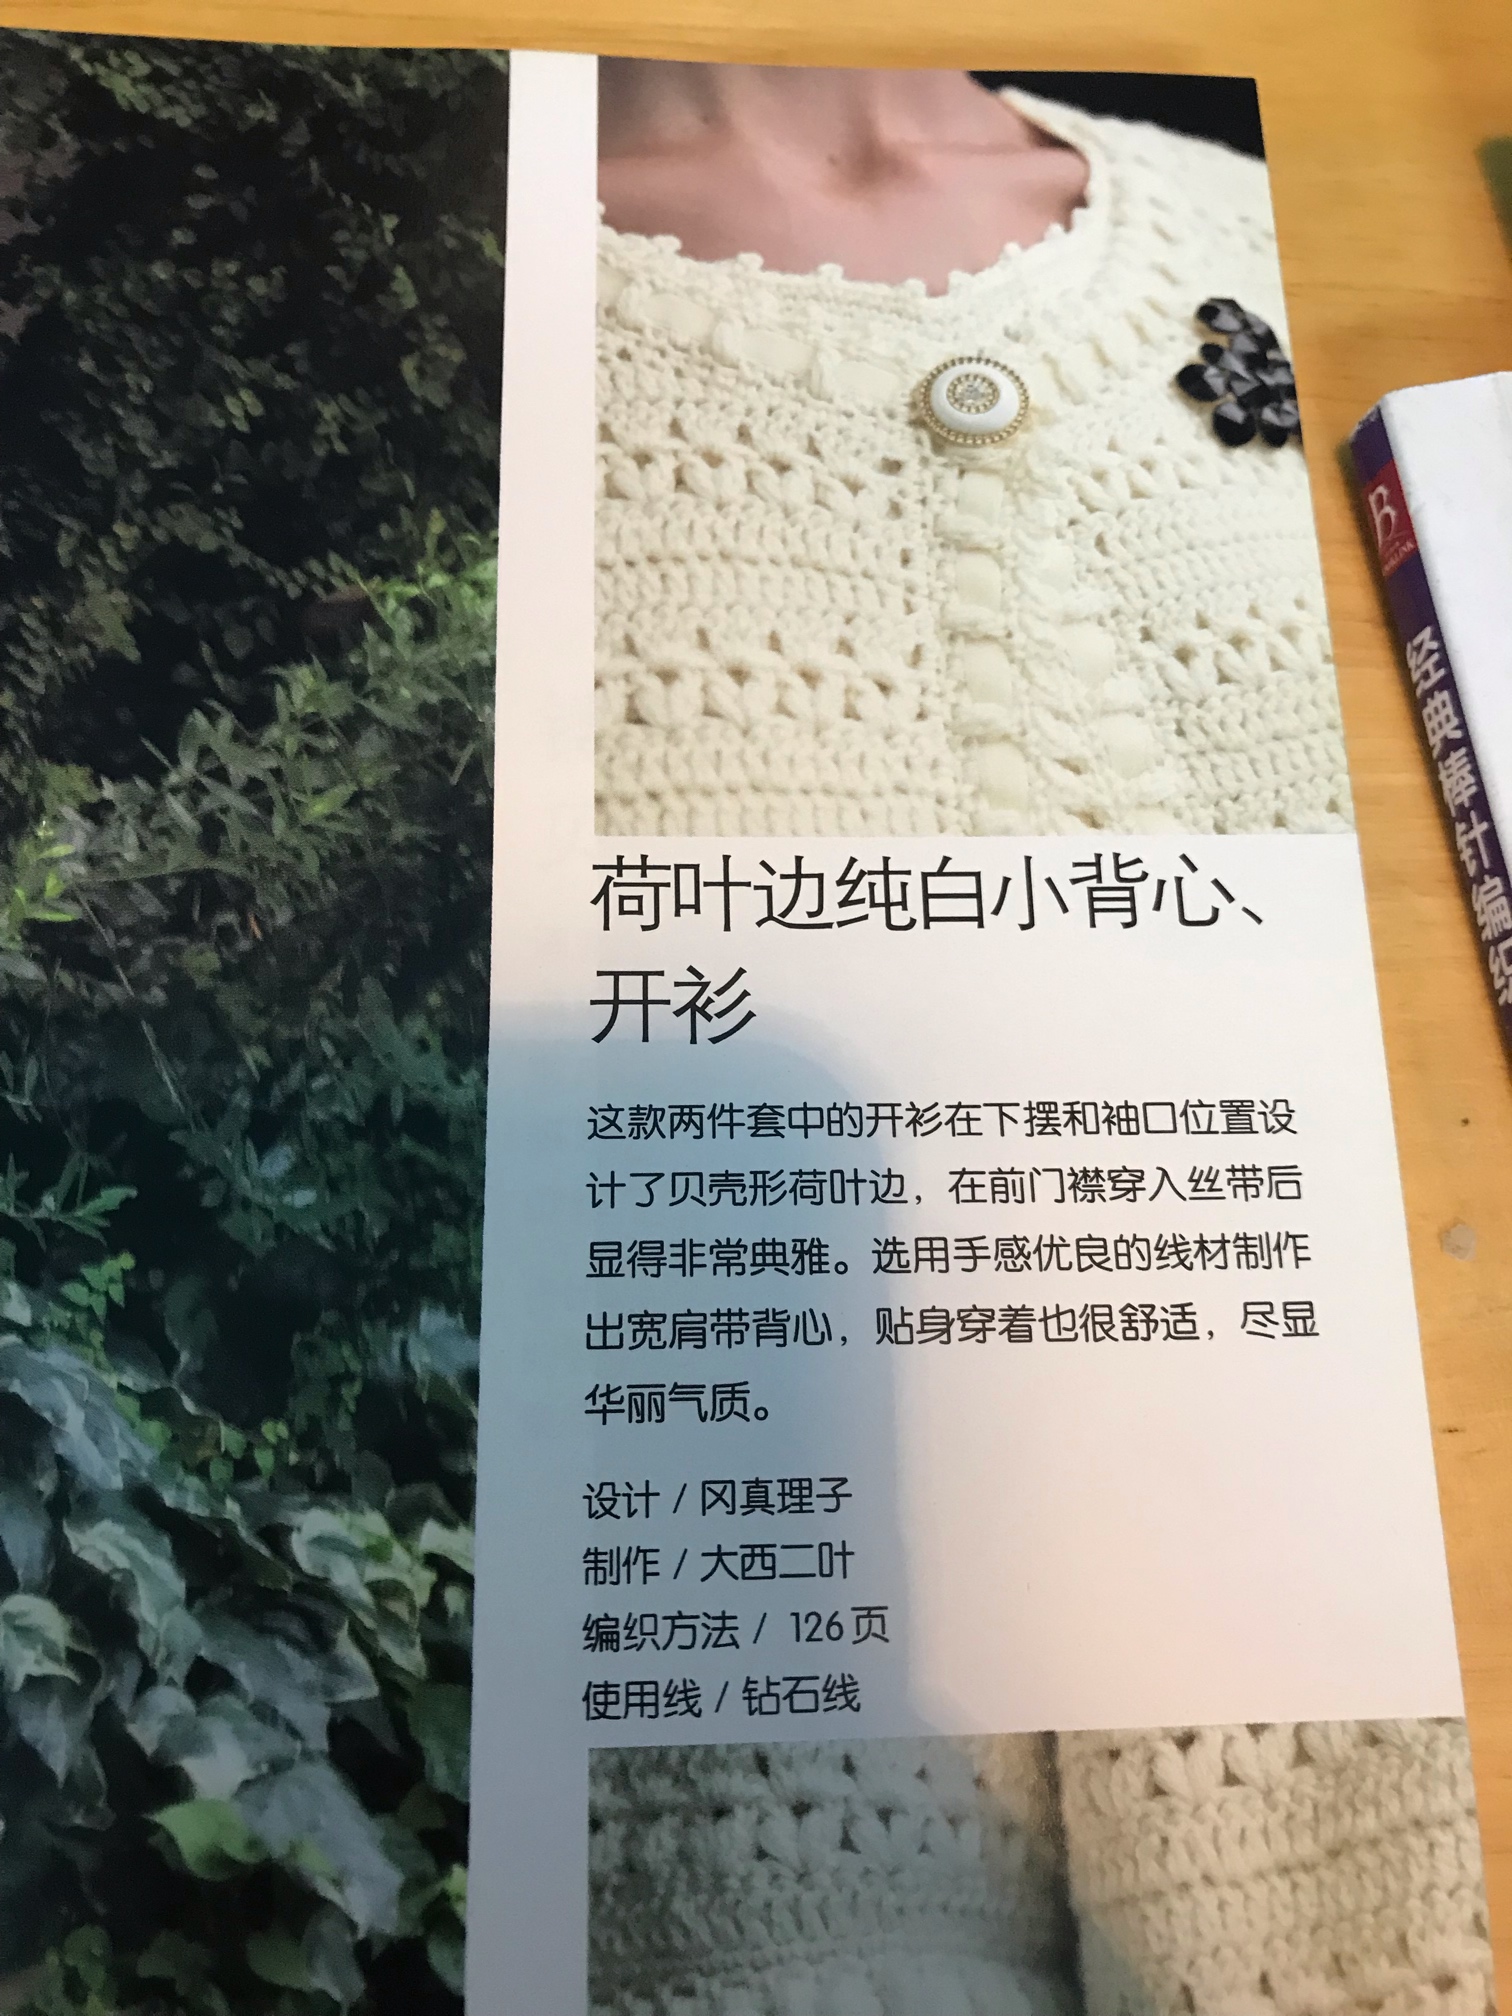 荷叶边纯白小背心、
开衫
这款两件套中的开衫在下摆和袖口位置设
计了贝壳形荷叶边，在前门襟穿入丝带后
显得非常典雅。选用手感优良的线材制作
出宽肩带背心，贴身穿着也很舒适，尽显
华丽气质。
设计 / 冈真理子
制作 / 大西二叶
编织方法 / 126页
使用线 / 钻石线
B
经典棒针编织